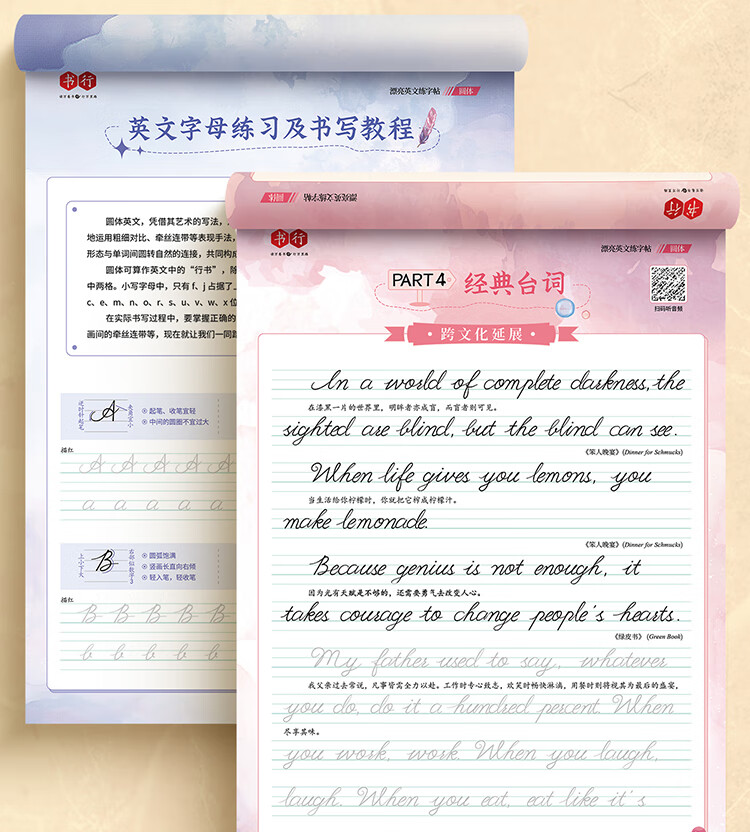 书行
漂亮英文练字帖 // 圆体
英文字母练习及书写教程
圆体英文，凭借其艺术的写法，
地运用粗细对比、牵丝连带等表现手法，
形态与单词间圆转自然的连接，共同构成
圆体可算作英文中的“行书”，除
中两格。小写字母中，只有f、j占据了
c、e、m、n、o、r、s、u、v、w、x位
在实际书写过程中，要掌握正确的
画间的牵丝连带等，现在就让我们一同
逆时针起笔
A
起笔、收笔宜轻
中间的圆圈不宜过大
描红
A A A A A
a a a a a
上小下大
B
右部似数字3
圆弧饱满
竖画长直向右倾
轻入笔，轻收笔
描红
B B B B B
b b b b b
圆体 // 漂亮英文练字帖
书行
书行
漂亮英文练字帖 // 圆体
PART 4 经典台词
扫码听音频
·跨文化延展·
In a world of complete darkness, the
在漆黑一片的世界里，明眸者亦成盲，而盲者则可见。
sighted are blind, but the blind can see.
《笨人晚宴》(Dinner for Schmucks)
When life gives you lemons, you
当生活给你柠檬时，你就把它榨成柠檬汁。
make lemonade.
《笨人晚宴》(Dinner for Schmucks)
Because genius is not enough, it
因为光有天赋是不够的，还需要勇气去改变人心。
takes courage to change people's hearts.
《绿皮书》 (Green Book)
My father used to say, whatever
我父亲过去常说，凡事皆需全力以赴。工作时专心致志，欢笑时畅快淋漓，用餐时则将视其为最后的盛宴，
you do, do it a hundred percent. When
尽享其味。
you work, work. When you laugh,
laugh. When you eat, eat like it's